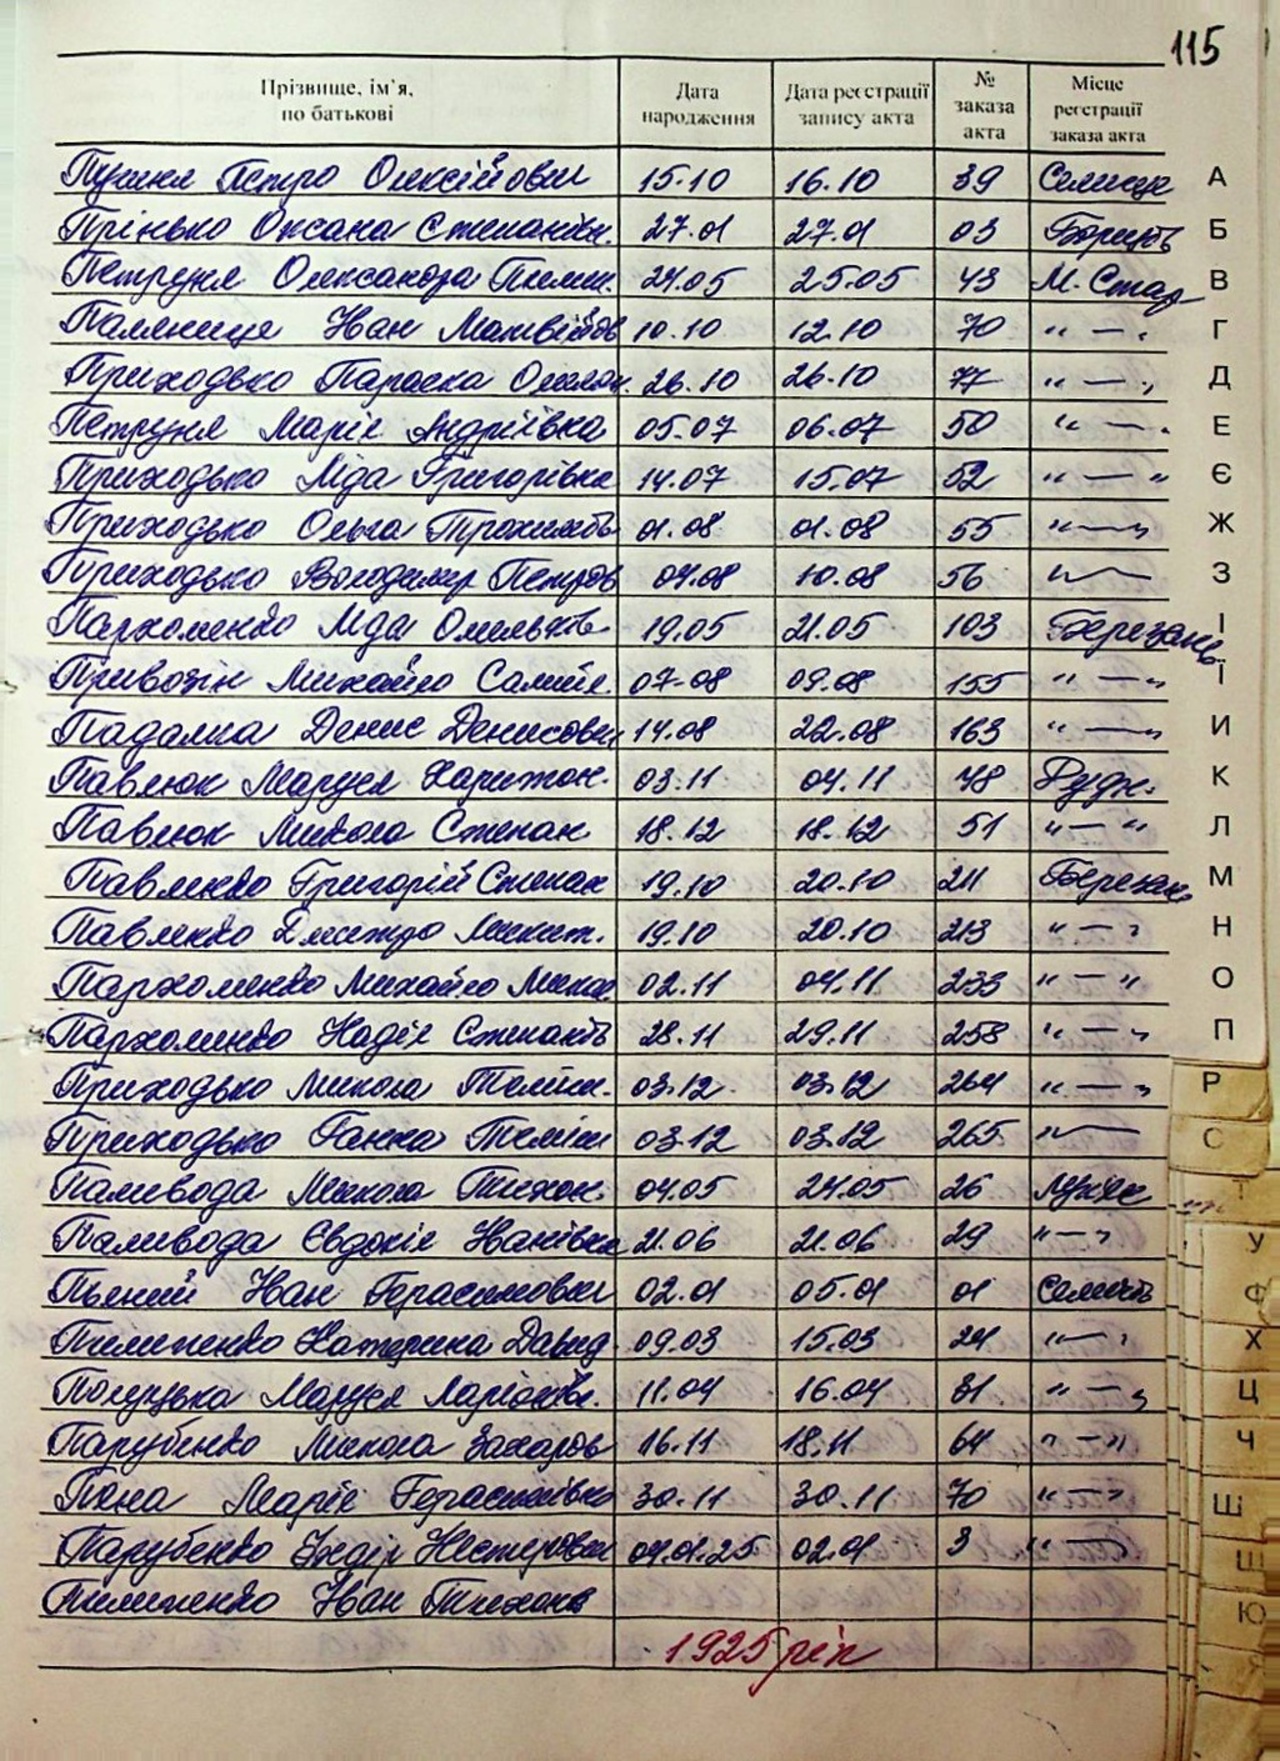 115
Прізвище, ім'я, по батькові Дата народження Дата реєстрації запису акта № заказа акта Місце реєстрації заказа акта
Петро Олексійович 15.10 16.10 39 Селище А
Прінько Оксана Степанівн. 27.01 27.01 03 Б
Петруня Олександра 24.05 25.05 43 М. Стар В
Паляниця Іван Матвійов 10.10 12.10 70 " — " Г
Приходько Параска 26.10 26.10 77 " — " Д
Петруня Марія Андріївна 05.07 06.07 50 " — " Е
Приходько Ліда Григорівна 14.07 15.07 52 " — " Є
Приходько Ольга Трохимівн 01.08 01.08 55 " — " Ж
Приходько Володимир Петров 09.08 10.08 56 " — З
Пархоменко Ліда Омельків 19.05 21.05 103 Березань І
Привозін Михайло Самійл. 07.08 09.08 155 " — " Ї
Падалка Денис Денисович 14.08 22.08 163 " — " И
Павлюк Маруся Харитон. 03.11 04.11 48 Рудн. К
Павлюк Микола Степан. 18.12 18.12 51 " — " Л
Павленко Григорій Степан 19.10 20.10 211 Березань М
Павленко Дмитро Микит. 19.10 20.10 213 " — " Н
Пархоменко Михайло Микол 02.11 04.11 233 " — " О
Пархоменко Надія Степанів 28.11 29.11 258 " — " П
Приходько Микола 03.12 03.12 264 " — " Р
Приходько Ганна 03.12 03.12 265 " — С
Паливода Микола Тихон. 04.05 24.05 26 Т
Паливода Євдокія Іванівна 21.06 21.06 29 " — " У
Пьяний Іван Герасимович 02.01 05.01 01 Ф
Пилипенко Катерина Давид 09.03 15.03 24 " — " Х
Маруся Ларіонівн. 11.04 16.04 31 " — " Ц
Парубенко Микола Захаров 16.11 18.11 64 " — " Ч
Марія Герасимівна 30.11 30.11 70 " — " Ш
Парубенко Несторович 04.01.25 02.01 3 " — " Щ
Пилипенко Іван Тихонов Ю
1925 рік